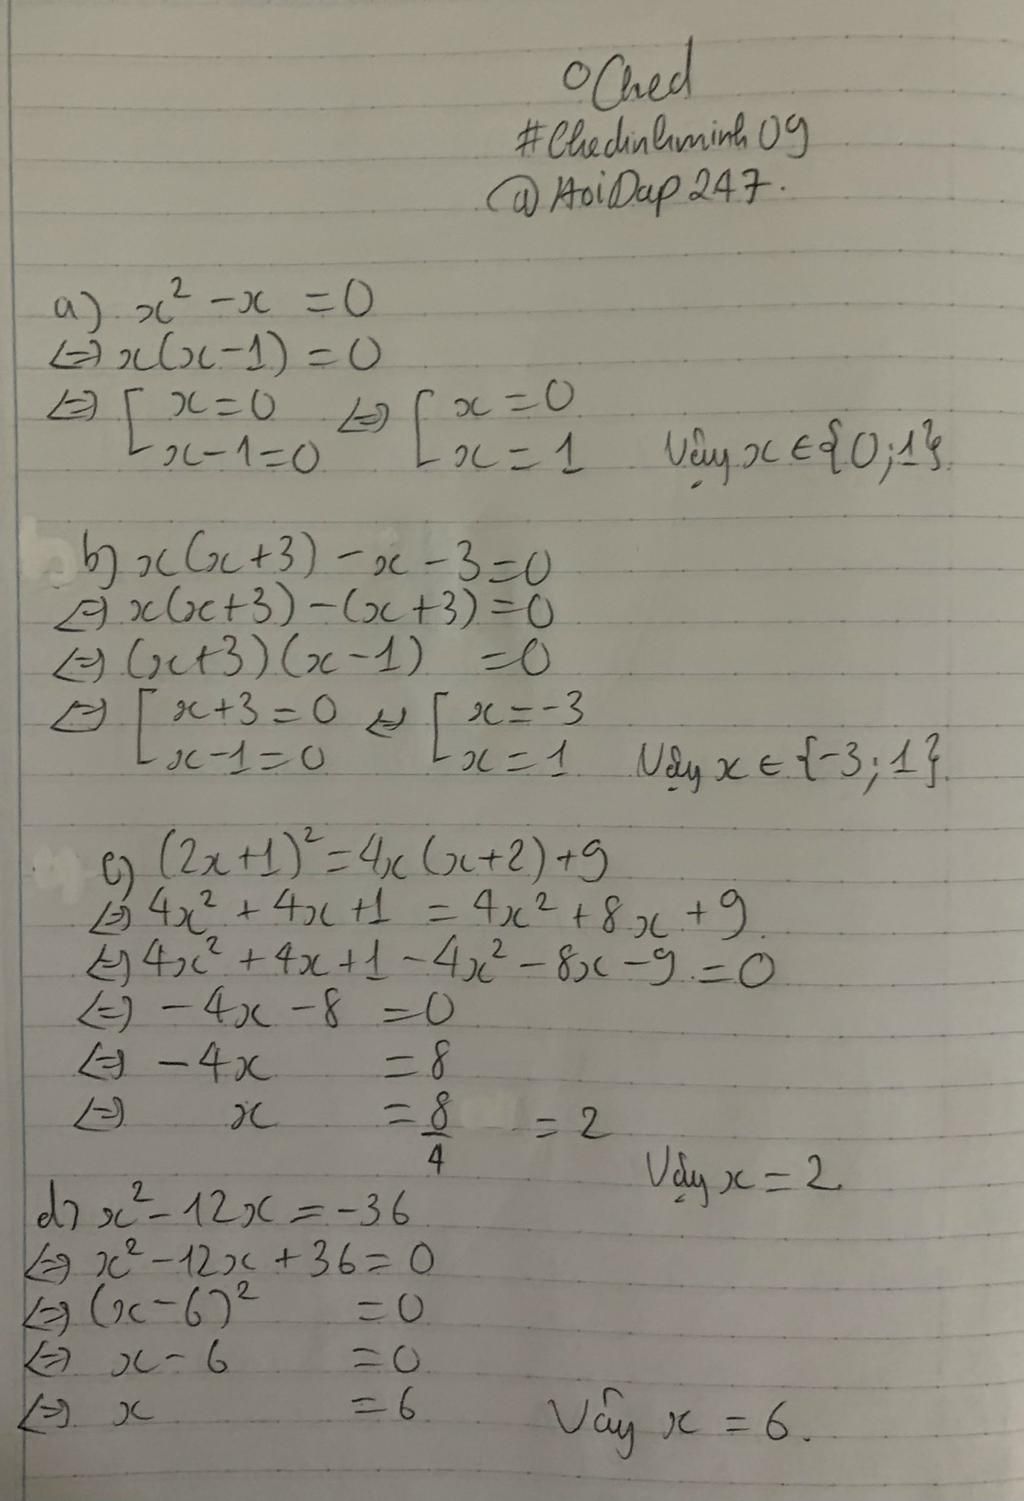 °Ched
#Chedinhminh09
@HoiDap247.
a) x² - x = 0
⇔ x(x-1) = 0
⇔ [ x = 0 ⇔ [ x = 0
x - 1 = 0 x = 1 Vậy x ∈ {0;1}.
b) x(x+3) - x - 3 = 0
⇔ x(x+3) - (x+3) = 0
⇔ (x+3)(x-1) = 0
⇔ [ x+3 = 0 ⇔ [ x = -3
x-1 = 0 x = 1 Vậy x ∈ {-3;1}.
c) (2x+1)² = 4x(x+2)+9
⇔ 4x² + 4x + 1 = 4x² + 8x + 9
⇔ 4x² + 4x + 1 - 4x² - 8x - 9 = 0
⇔ -4x - 8 = 0
⇔ -4x = 8
⇔ x = 8/4 = 2
Vậy x = 2
d) x² - 12x = -36
⇔ x² - 12x + 36 = 0
⇔ (x-6)² = 0
⇔ x - 6 = 0
⇔ x = 6 Vậy x = 6.